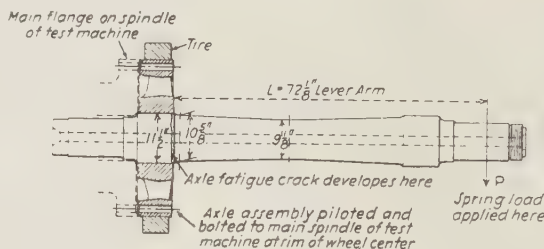 Main flange on spindle
of test machine
Tire
L = 72 1/8" Lever Arm
11 1/2"
10 5/8"
9 11/8"
Axle fatigue crack developes here
P
Spring load
applied here
Axle assembly piloted and
bolted to main spindle of test
machine at rim of wheel center